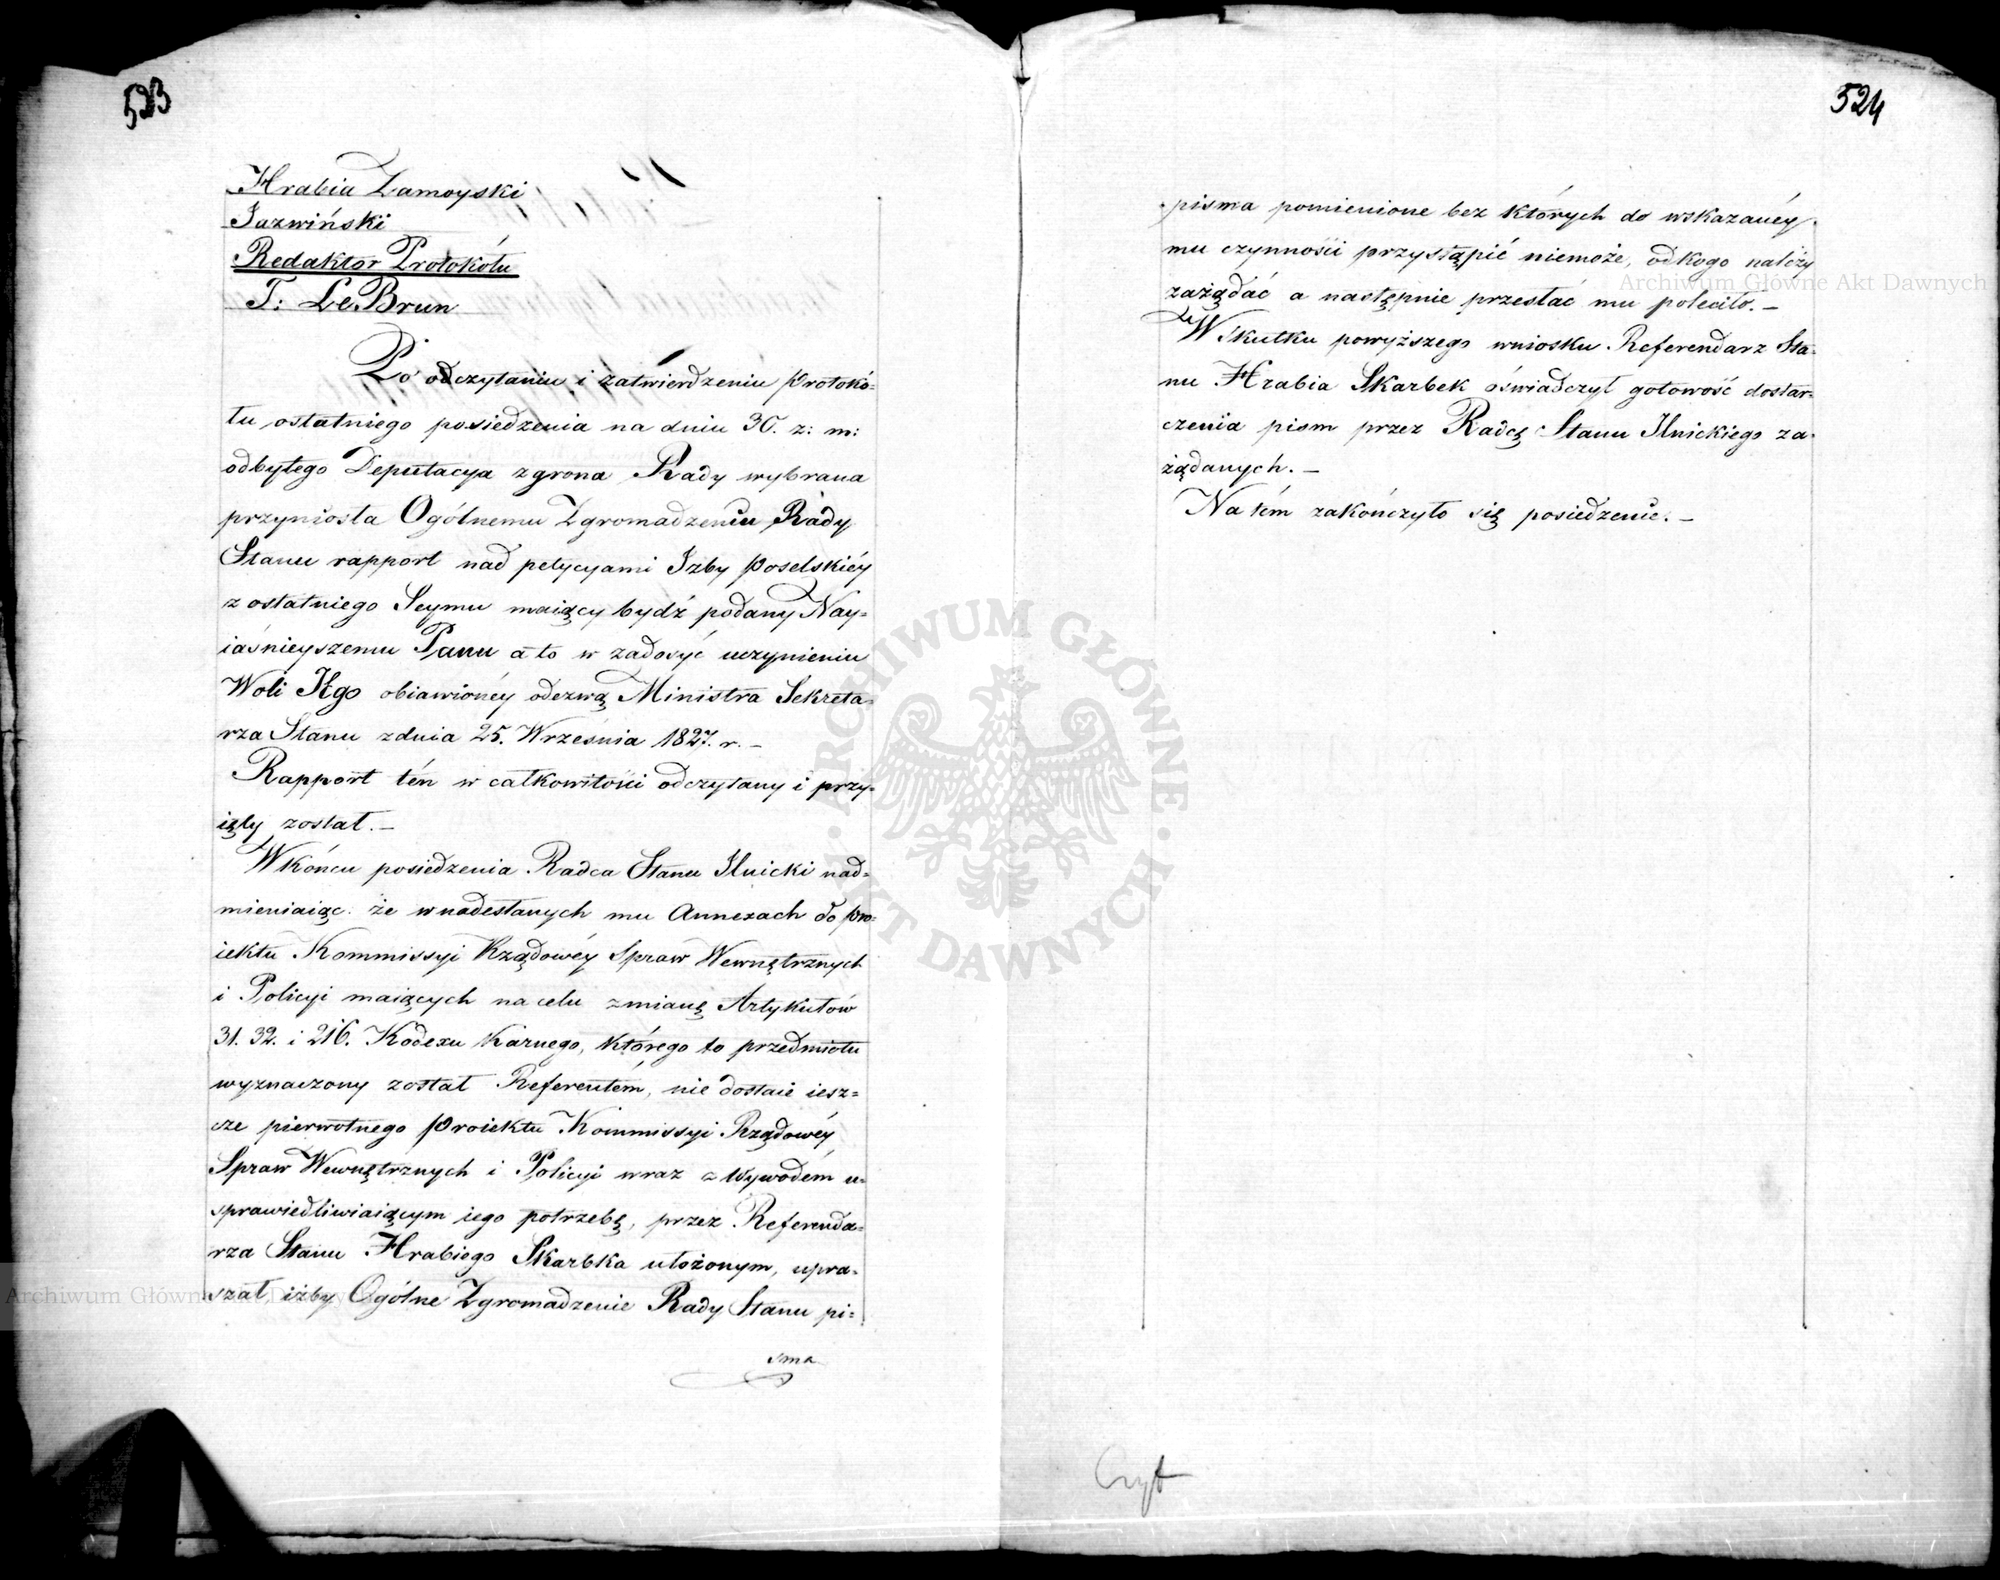 523
Hrabia Zamoyski
Jazwiński
Redaktor Protokółu
T: Le Brun
Po odczytaniu i zatwierdzeniu Protokó=
łu ostatniego posiedzenia na dniu 30. z: m:
odbytego Deputacya z grona Rady wybrana
przyniosła Ogólnemu Zgromadzeniu Rady
Stanu rapport nad petycyami Izby Poselskiéy
z ostatniego Seymu maiący bydź podany Nay=
iaśnieyszemu Panu a to w zadosyć uczynieniu
Woli Jego obiawionéy odezwą Ministra Sekreta=
rza Stanu z dnia 25. Września 1827. r. –
Rapport tén w całkowitości odczytany i przy=
ięty został. –
W końcu posiedzenia Radca Stanu Ilnicki nad=
mieniaiąc: że w nadesłanych mu Annexach do Pro=
iektu Kommissyi Rządowéy Spraw Wewnętrznych
i Policyi maiących na celu zmianę Artykułów
31. 32. i 216. Kodexu Karnego, którego to przedmiotu
wyznaczony został Referentém, nie dostaie iesz=
cze pierwotnego Proiektu Kommissyi Rządowéy
Spraw Wewnętrznych i Policyi wraz z Wywodém u=
sprawiedliwiaiącym iego potrzebę, przez Referenda=
rza Stanu Hrabiego Skarbka ułożonym, upra=
szał, iżby Ogólne Zgromadzenie Rady Stanu pi=
sma
524
pisma pomienione bez których do wskazanéy
mu czynności przystąpić niemoże, od kogo należy
zażądać a następnie przesłać mu poleciło. –
W skutku powyższego wniosku Referendarz Sta=
nu Hrabia Skarbek oświadczył gotowość dostar=
czenia pism przez Radcę Stanu Ilnickiego za=
żądanych. –
Na tém zakończyło się posiedzenie. –
Archiwum Główne Akt Dawnych
ARCHIWUM GŁÓWNE AKT DAWNYCH
Archiwum Główne Akt Dawnych